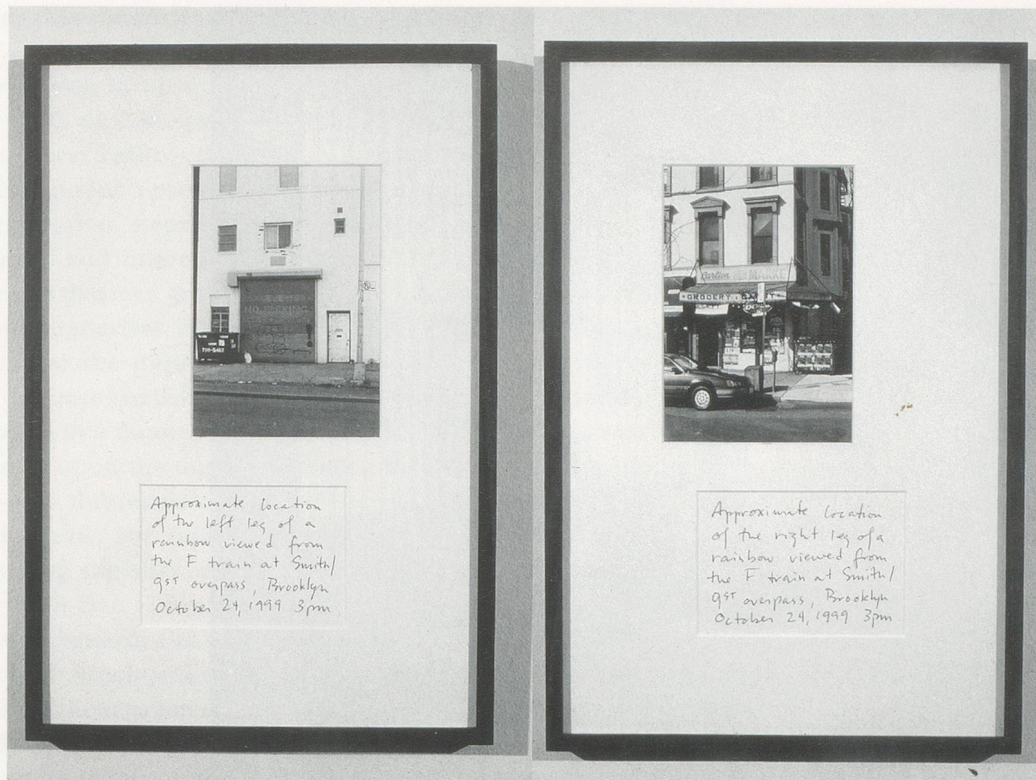 NO PARKING
Carlton MARKET
GROCERY
Approximate location
of the left leg of a
rainbow viewed from
the F train at Smith/
9ST overpass, Brooklyn
October 24, 1999 3pm
Approximate location
of the right leg of a
rainbow viewed from
the F train at Smith/
9ST overpass, Brooklyn
October 24, 1999 3pm